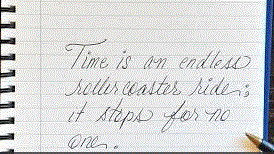 Time is an endless
rollercoaster ride;
it stops for no
one.